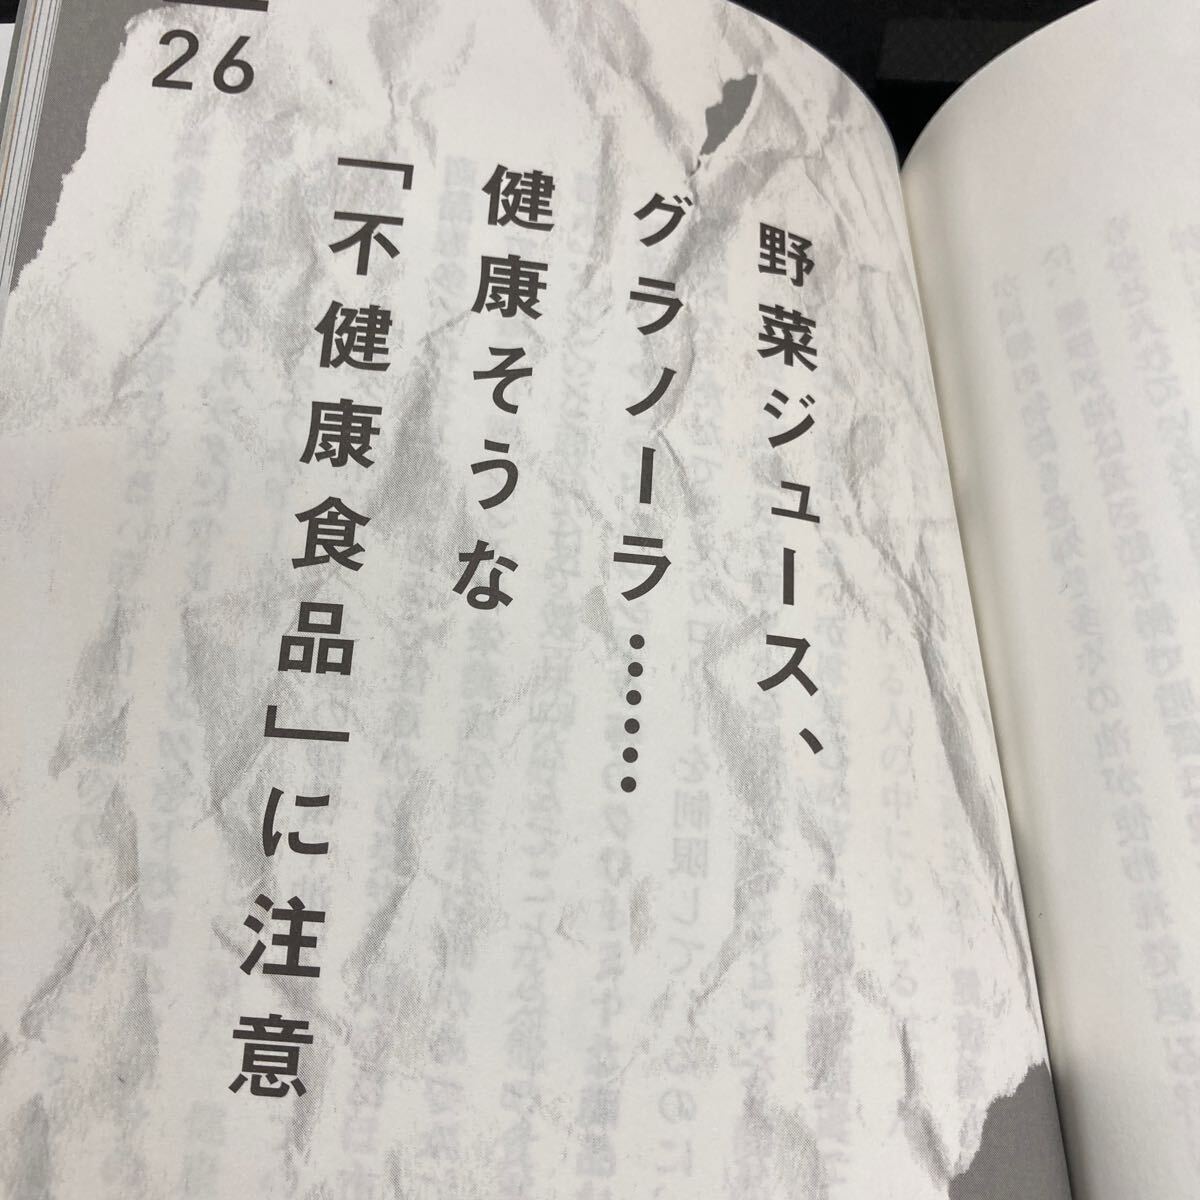 26
野菜ジュース、
グラノーラ……
健康そうな
「不健康食品」に注意